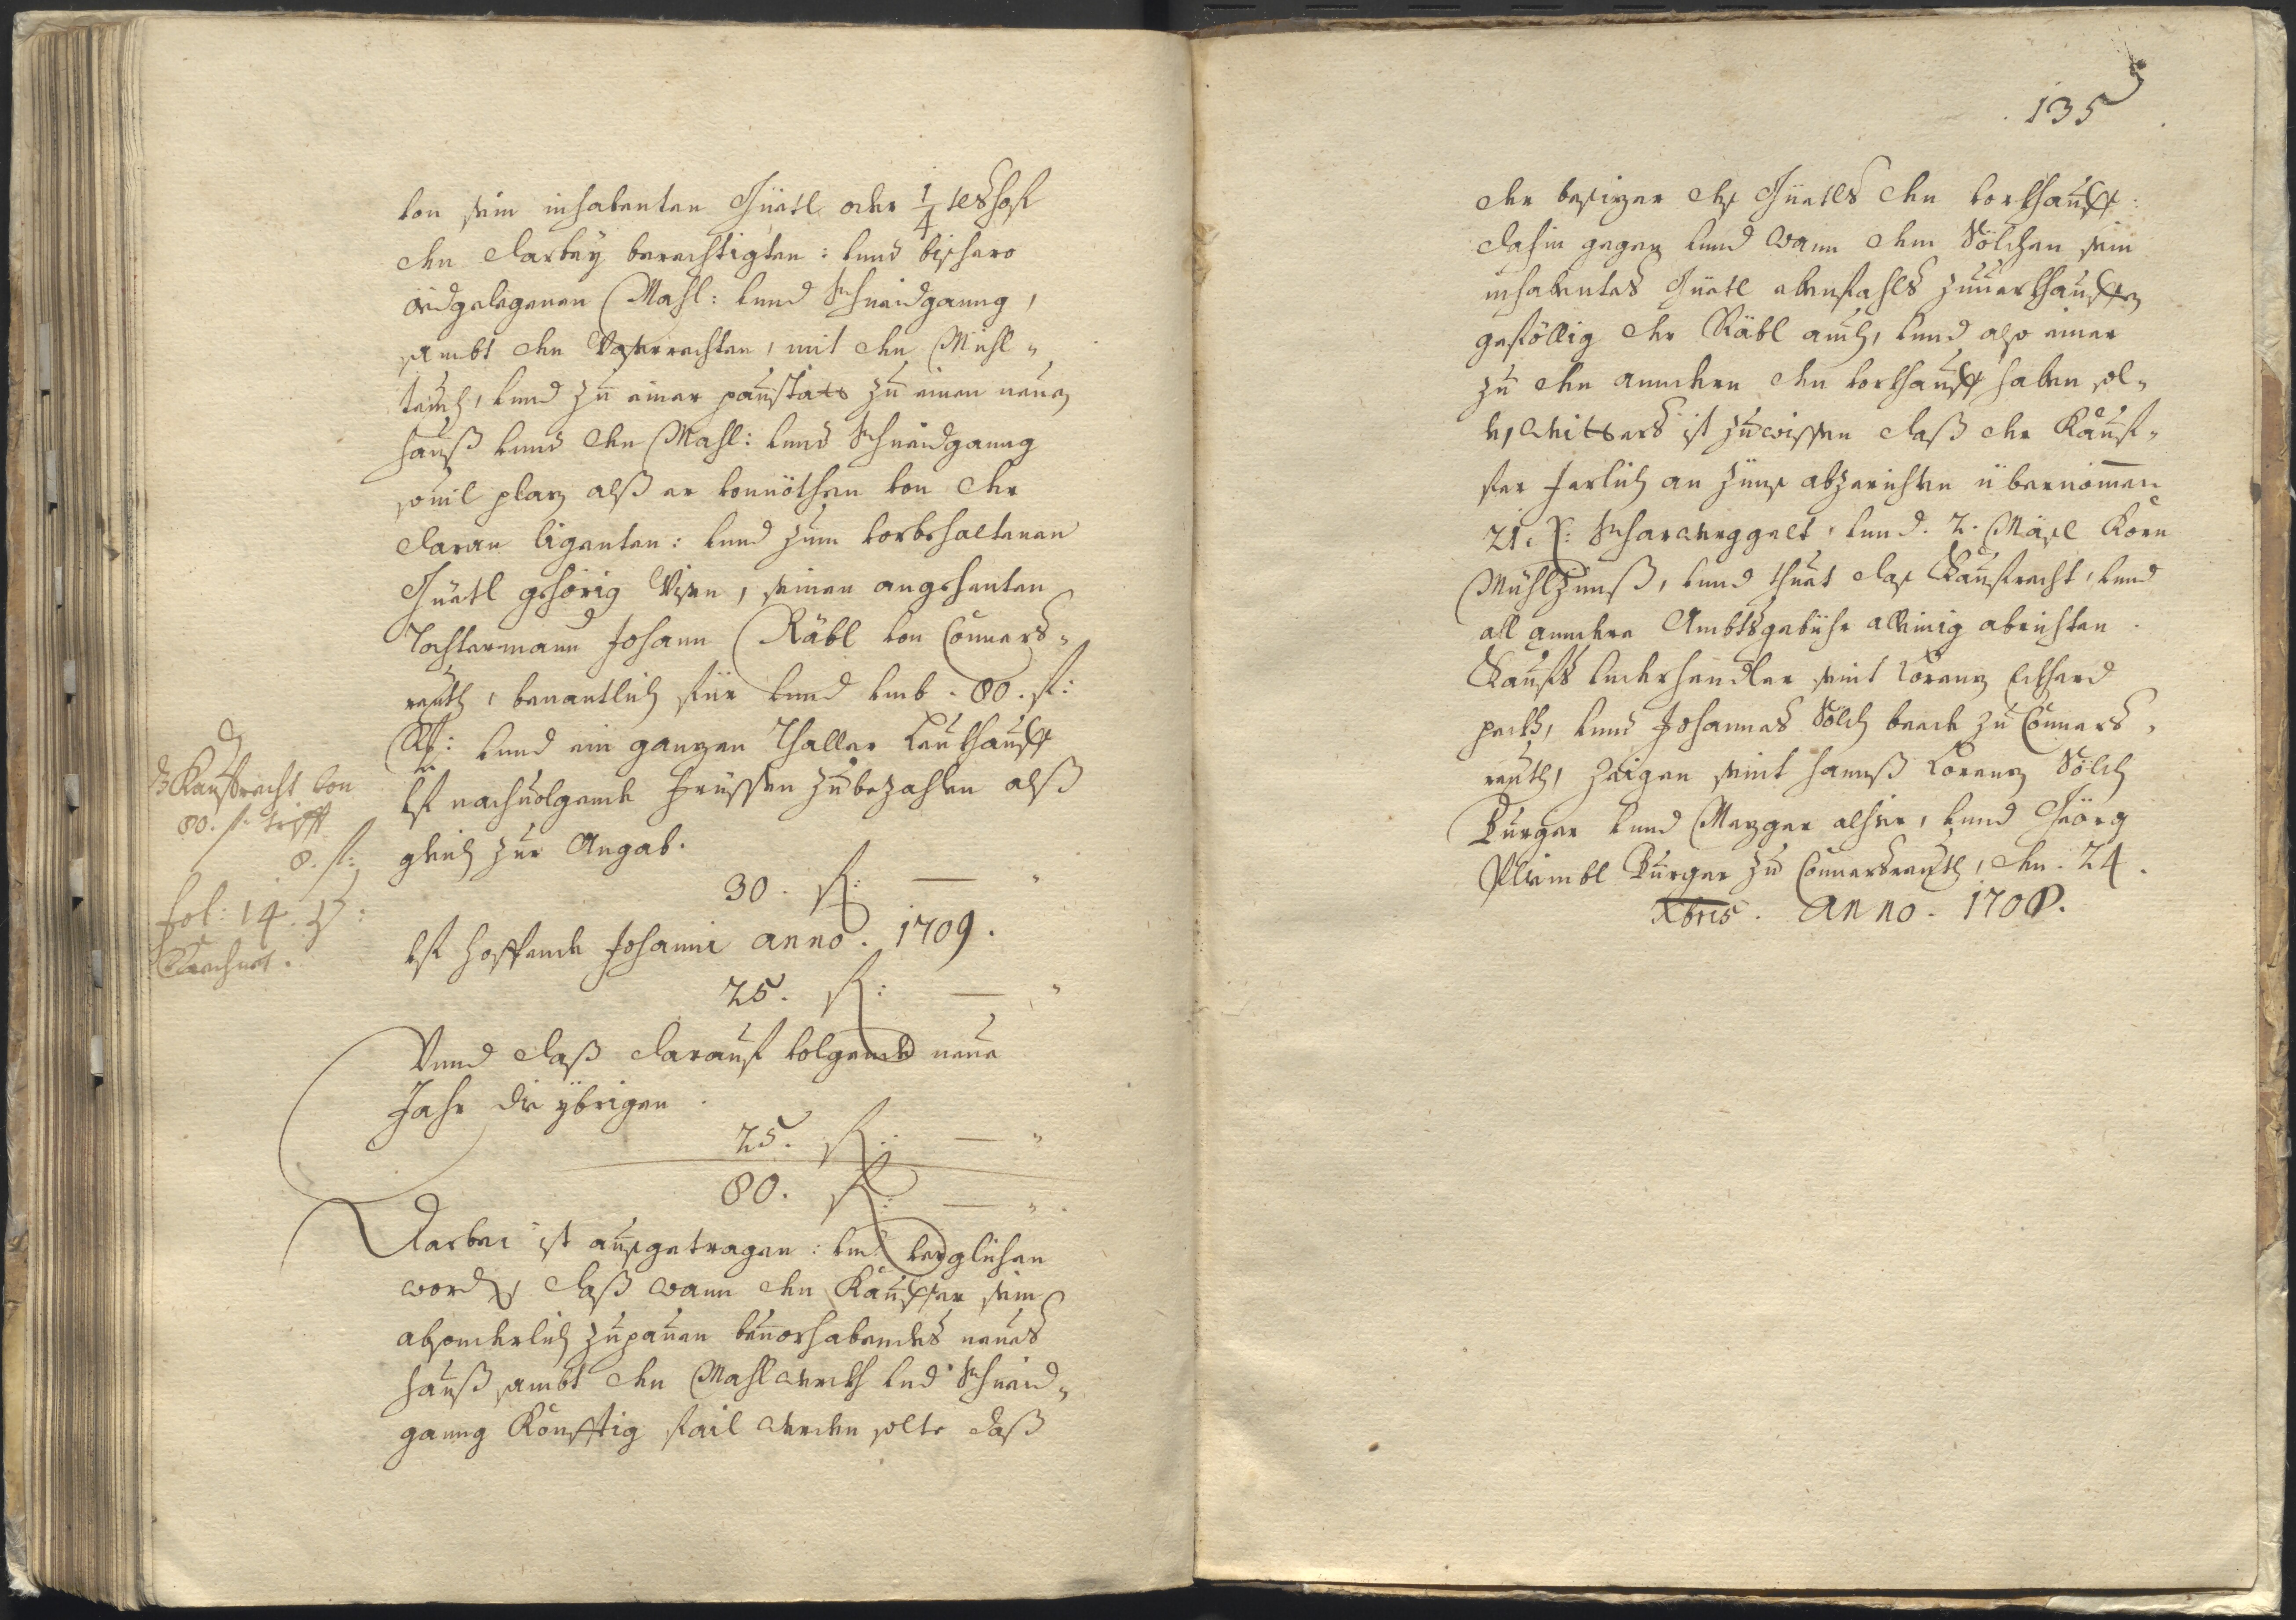 von sein inhabenten Güetl oder 1/4 tlshof
den darbey berechtigten: vnd bishero
ödgelegenen Mahl: vnnd Schneidganng,
sambt den Wasserrechten, mit den Mühl„
teuch, vnnd zu einer paustatt zu einen neuen
hauß vnnd den Mahl: vnnd Schneidganng
souil plaz alß er vonnöthen von der
daran ligenten: vnnd zum vorbehaltenen
Güetl gehörig Wisen, seinen angehenten
Tochtermann Johann Räbl von Conners„
reuth, benantlich für vnnd vmb . 80 . fl:
Rh: vnnd ein ganzen Thaller Leykhauff
vf nachuolgende Früssten zubezahlen alß
gleich zur Angab.
30 . fl: — „
vf hoffende Johanni anno . 1709 .
25 . fl: — „
Vnnd daß darauf volgende neue
Jahr die ybrigen
25 . fl: — „
80 . fl: — „
Darbei ist ausgetragen: vnd verglichen
worden, daß wann den Kauffer sein
absonderlich zupauen beuorhabendes neues
hauß sambt den Mahlwerckh vnd Schneid„
ganng Könfftig fail werden solte daß
Kaufrecht von
80. fl. trifft
8. fl:
fol: 14.
Rechnet.
135
der besizer des Güetls den vorkhauff:
dahin gegen vnnd wann dem Sölchen sein
inhabentes Güetl ebenfahls zuuerkhauffen
geföllig der Räbl auch, vnnd also einer
zu den anndern den vorkhauff haben sol„
le, weitters ist zuwissen daß der Kauf„
fer Jerlich an Zünß abzerichten übernommen
21. X: Scharwerggelt, vnnd . 2 . Mäsl Korn
Mühlzünß, vnnd thuet das Kaufrecht, vnnd
all anndere Ambtsgebühr alleinig abrichten .
Kaufs vnderhendler seint Lorenz Eckhard
peckh, vnnd Johannes Sölch beede zu Conners„
reuth, Zeigen seint hannß Lorenz Sölch
Burger vnnd Mezger alhier, vnnd Geörg
Pleimbl Burger zu Connersreuth, den . 24 .
Xbris . Anno . 1708.